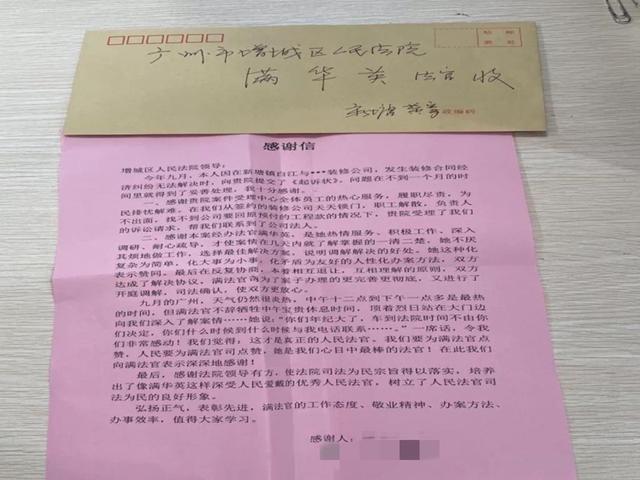 贴邮
票处
广州市增城区人民法院
满华英法官收
邮政编码
感谢信
增城区人民法院领导:
今年九月,本人因在新塘镇白江与***装修公司,发生装修合同经
济纠纷无法解决时,向贵院提交了《起诉状》。问题在不到一个月的时
间里就得到了妥善处理,我十分感谢。
一、感谢贵院案件受理中心全体员工的热心服务,履职尽责,为
民排忧解难。在我们从签约的装修公司天天锁门,职工解散,负责人
不出面,找不到公司要回原预付的工程款的情况下,贵院受理了我们
的诉讼请求,帮我们联系到了公司法人。
二、感谢本案经办法官满华英,是她热情服务、积极工作、深入
调研、耐心疏导,才使案情在几天内就了解掌握的一清二楚,她不厌
其烦地做工作,选择最佳解决方案,说明调解解决的好处。她这种化
复杂为简单,化大事为小事,化矛盾为友好的人性化办案方法,双方
表示赞同。最后在反复协商,本着相互退让,互相理解的原则,双方
达成了解决协议,满法官为了案子办理的更完善更彻底,又进行了
开庭调解,司法确认,使双方更放心。
九月的广州,天气仍然很炎热,中午十二点到下午一点多是最热
的时间,但满法官不辞牺牲中午宝贵休息时间,顶着烈日站在大门边
向我们深入了解案情……她说:"你们年纪大了,车到法院时间不由你
们决定,你们什么时候到什么时候与我电话联系……。"一席话,令我
们非常感动!我们觉得,这才是真正的人民法官。我们要为满法官点
赞,人民要为满法官司点赞,她是我们心目中最棒的法官!在此我们
向满法官表示深深地感谢!
最后,感谢法院领导有方,使法院司法为民宗旨得以落实,培养
出了像满华英这样深受人民爱戴的优秀人民法官,树立了人民法官司
法为民的良好形象。
弘扬正气,表彰先进,满法官的工作态度、敬业精神、办案方法、
办事效率,值得大家学习。
感谢人: